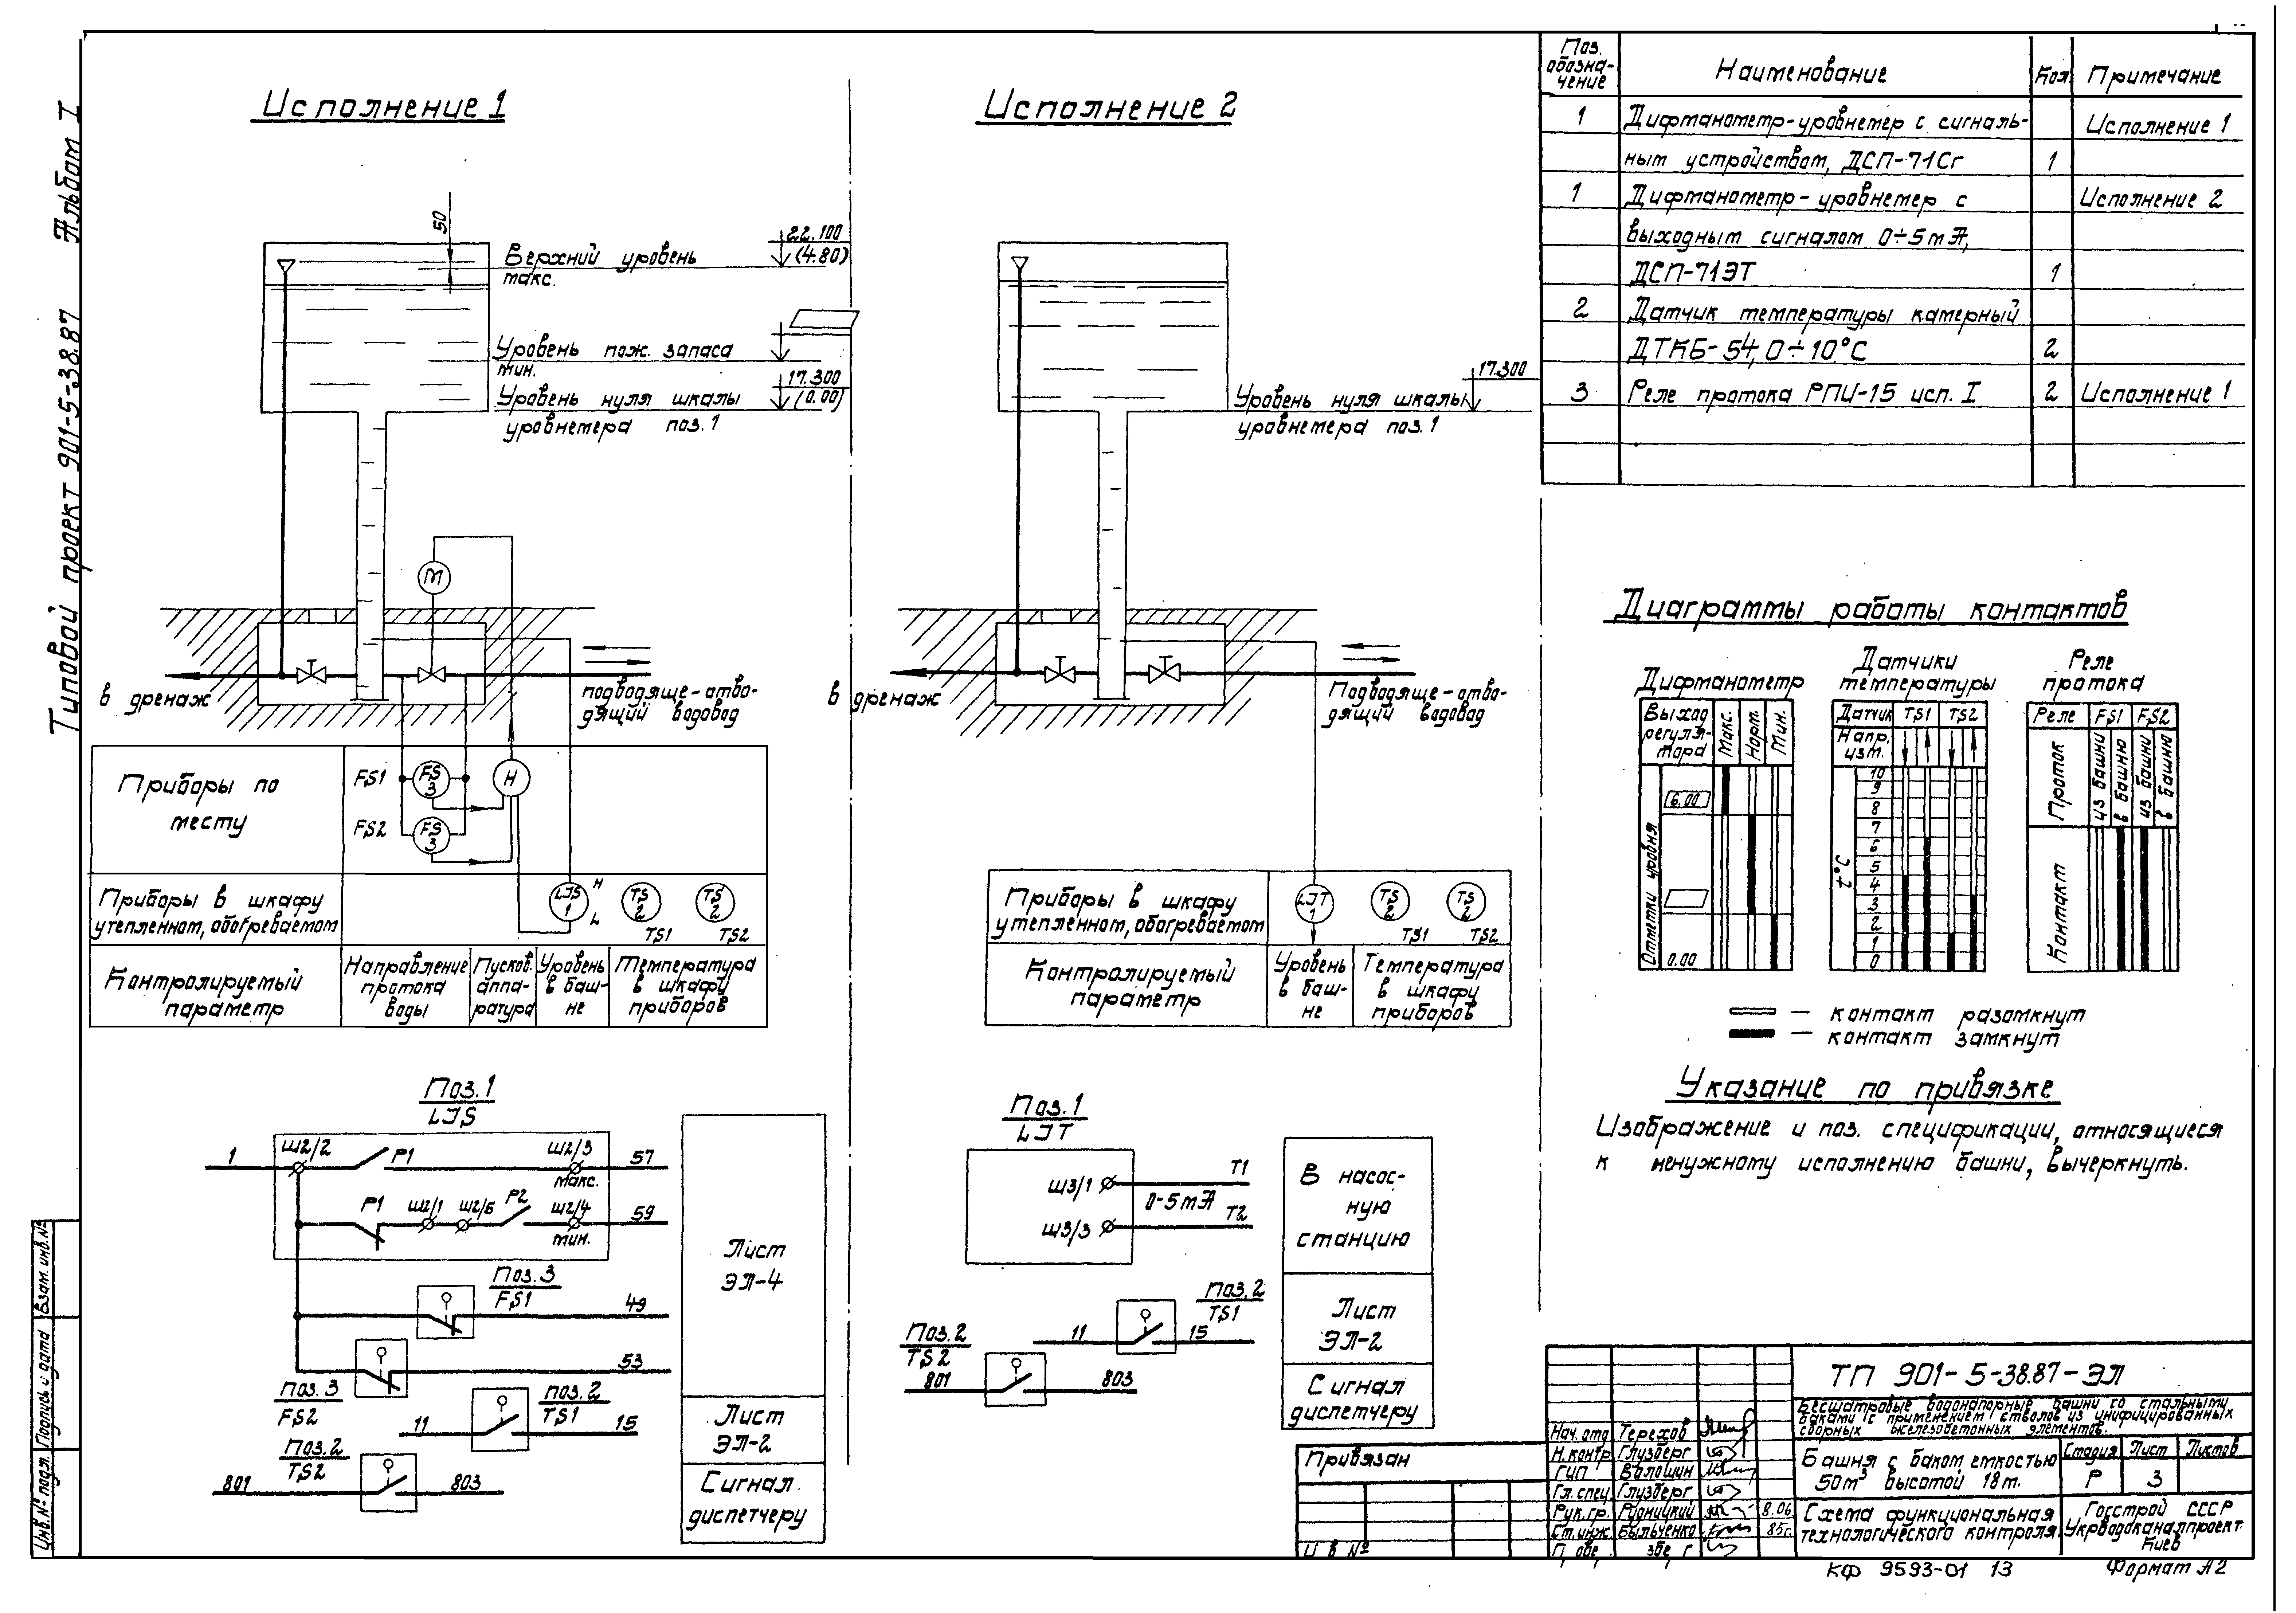 Типовой проект 901-5-38.87 Альбом I
Исполнение 1
50
Верхний уровень
макс.
22.100
(4.80)
Уровень пож. запаса
мин.
17.300
(0.00)
Уровень нуля шкалы
уровнемера поз. 1
М
в дренаж
подводяще-отво-
дящий водовод
Приборы по
месту
FS1
FS
3
Н
FS2
FS
3
Приборы в шкафу
утепленном, обогреваемом
LJS
1
H
L
TS
2
TS1
TS
2
TS2
Контролируемый
параметр
Направление
протока
воды
Пусков.
аппа-
ратура
Уровень
в баш-
не
Температура
в шкафу
приборов
Поз. 1
LJS
1
Ш2/2
Р1
Ш2/3
макс.
57
Р1
Ш2/1
Ш2/5
Р2
Ш2/4
мин.
59
Поз. 3
FS1
49
53
Поз. 3
FS2
Поз. 2
TS1
11
15
Поз. 2
TS2
801
803
Лист
ЭЛ-4
Лист
ЭЛ-2
Сигнал
диспетчеру
Исполнение 2
17.300
Уровень нуля шкалы
уровнемера поз. 1
в дренаж
Подводяще-отво-
дящий водовод
Приборы в шкафу
утепленном, обогреваемом
LJT
1
TS
2
TS1
TS
2
TS2
Контролируемый
параметр
Уровень
в баш-
не
Температура
в шкафу
приборов
Поз. 1
LJT
Ш3/1
Т1
0-5mA
Ш3/3
Т2
Поз. 2
TS1
11
15
Поз. 2
TS2
801
803
В насос-
ную
станцию
Лист
ЭЛ-2
Сигнал
диспетчеру
Поз.
обозна-
чение
Наименование
Кол.
Примечание
1 Дифманометр-уровнемер с сигналь- Исполнение 1
ным устройством, ДСП-71Сг 1
1 Дифманометр-уровнемер с Исполнение 2
выходным сигналом 0÷5mA,
ДСП-71ЭТ 1
2 Датчик температуры камерный
ДТКБ-54, 0÷10°С 2
3 Реле протока РПИ-15 исп. I 2 Исполнение 1
Диаграммы работы контактов
Дифманометр
Выход
регуля-
тора
Макс.
Норм.
Мин.
Отметки уровня
6.00
0.00
Датчики
температуры
Датчик TS1 TS2
Напр.
изм.
t°C
10
9
8
7
6
5
4
3
2
1
0
Реле
протока
Реле FS1 FS2
Проток
из башни
в башню
из башни
в башню
Контакт
— контакт разомкнут
— контакт замкнут
Указание по привязке
Изображение и поз. спецификации, относящиеся
к ненужному исполнению башни, вычеркнуть.
ТП 901-5-38.87-ЭЛ
Бесшатровые водонапорные башни со стальными
баками с применением стволов из унифицированных
сборных железобетонных элементов.
Башня с баком емкостью
50м³ высотой 18м.
Стадия Лист Листов
Р 3
Схема функциональная
технологического контроля.
Госстрой СССР
Укрводоканалпроект
Киев
Нач. отд Терехов
Н.контр. Глузберг
ГИП Волошин
Гл. спец Глузберг
Рук. гр. Рудницкий 8.06
Ст. инж. Быльченко 85г.
Привязан
Инв. № подл. Подпись и дата Взам. инв. №
КФ 9593-01 13
Формат А2